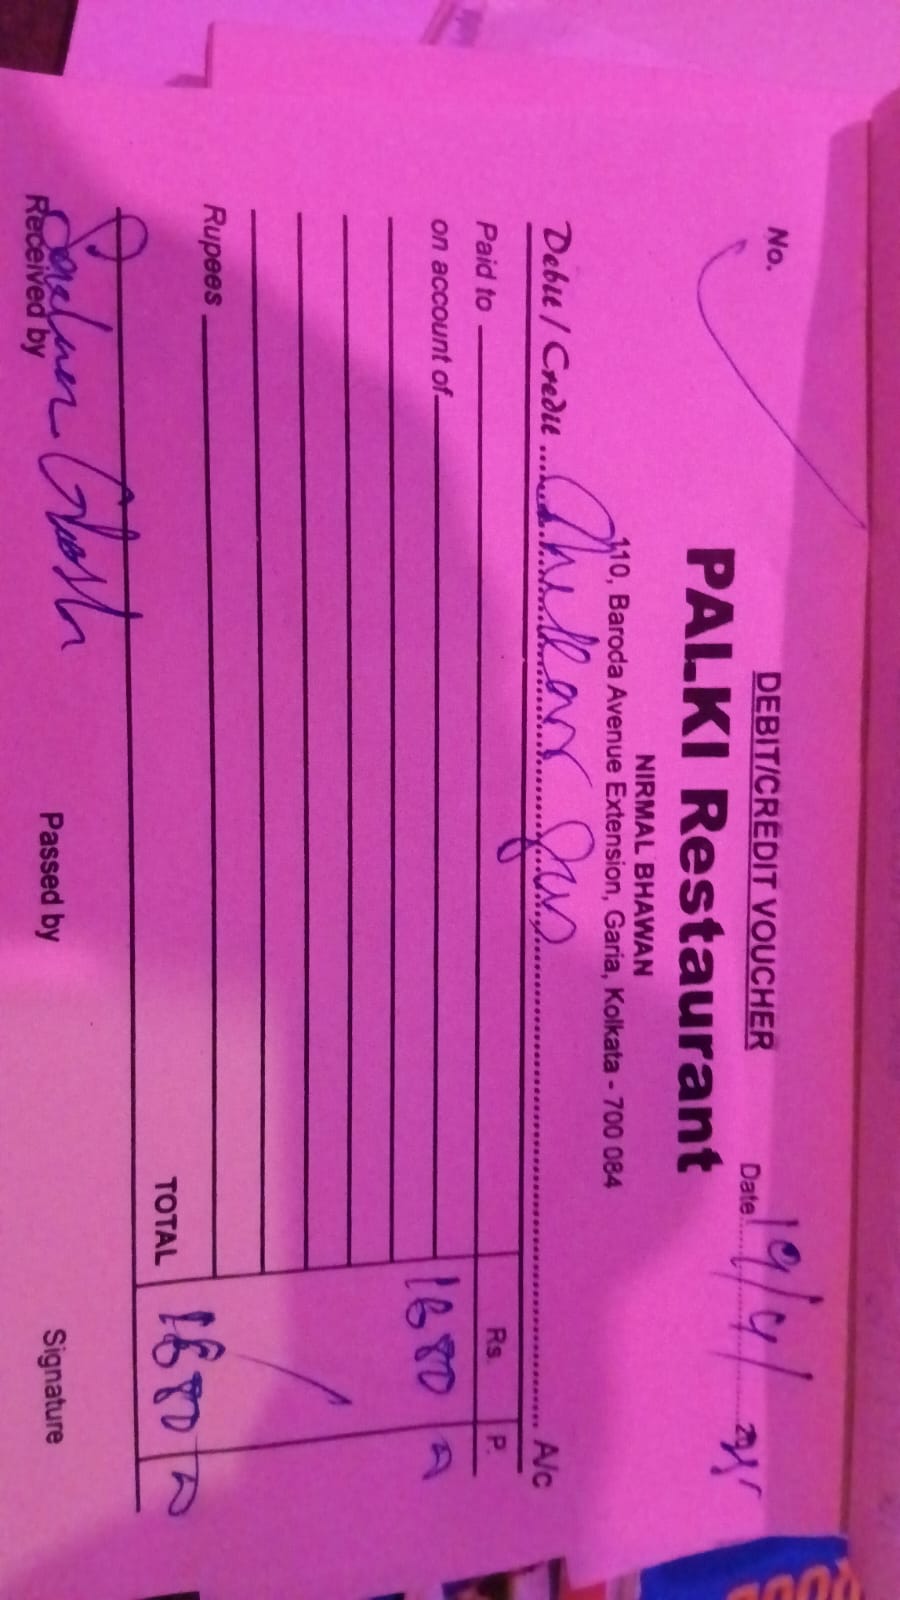 DEBIT/CREDIT VOUCHER
No. Date 19/4/
PALKI Restaurant
NIRMAL BHAWAN
110, Baroda Avenue Extension, Garia, Kolkata - 700 084
Debit / Credit A/c
Paid to Rs. P.
on account of 1680
Rupees
TOTAL 1680
Ghosh
Received by Passed by Signature